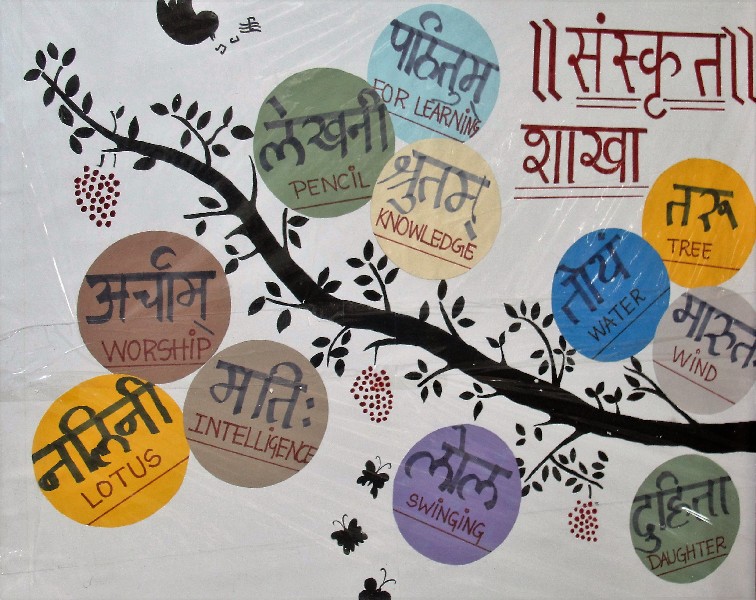 ॥संस्कृत॥
शाखा
पठितुम्
FOR LEARNING
लेखनी
PENCIL
श्रुतम्
KNOWLEDGE
तरू
TREE
तोयं
WATER
मारुतः
WIND
अर्चाम्
WORSHIP
मतिः
INTELLIGENCE
नलिनी
LOTUS
लोल
SWINGING
दुहिता
DAUGHTER